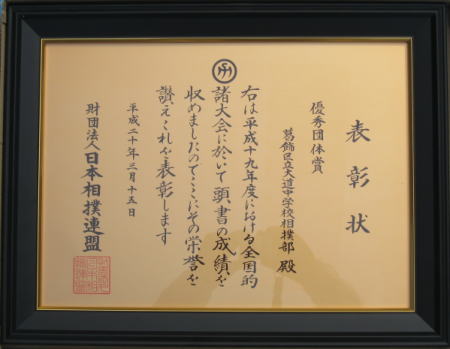 表彰状
優秀団体賞
葛飾区立大道中学校相撲部 殿
右は平成十九年度における全国的
諸大会に於いて頭書の成績を
収めましたのでここにその栄誉を
讃えこれを表彰します
平成二十年三月十五日
財団法人日本相撲連盟